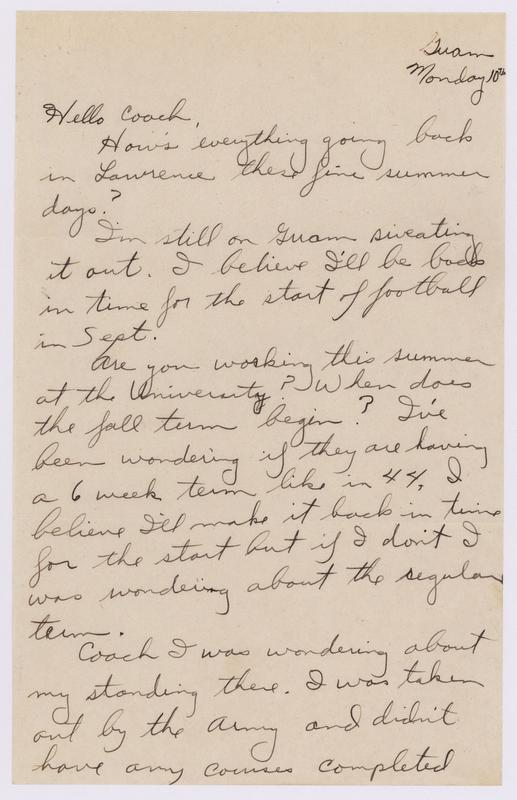 Guam
Monday 10th
Hello Coach,
How's everything going back
in Lawrence these fine summer
days?
I'm still on Guam sweating
it out. I believe I'll be back
in time for the start of football
in Sept.
Are you working this summer
at the University? When does
the fall term begin? I've
been wondering if they are having
a 6 week term like in 44, I
believe I'll make it back in time
for the start but if I don't I
was wondering about the regular
term.
Coach I was wondering about
my standing there. I was taken
out by the Army and didn't
have any courses completed